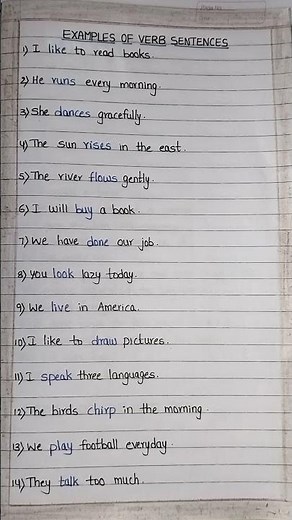 EXAMPLES OF VERB SENTENCES
1) I like to read books.
2) He runs every morning.
3) She dances gracefully.
4) The sun rises in the east.
5) The river flows gently.
6) I will buy a book.
7) We have done our job.
8) you look lazy today.
9) We live in America.
10) I like to draw pictures.
11) I speak three languages.
12) The birds chirp in the morning.
13) We play football everyday.
14) They talk too much.